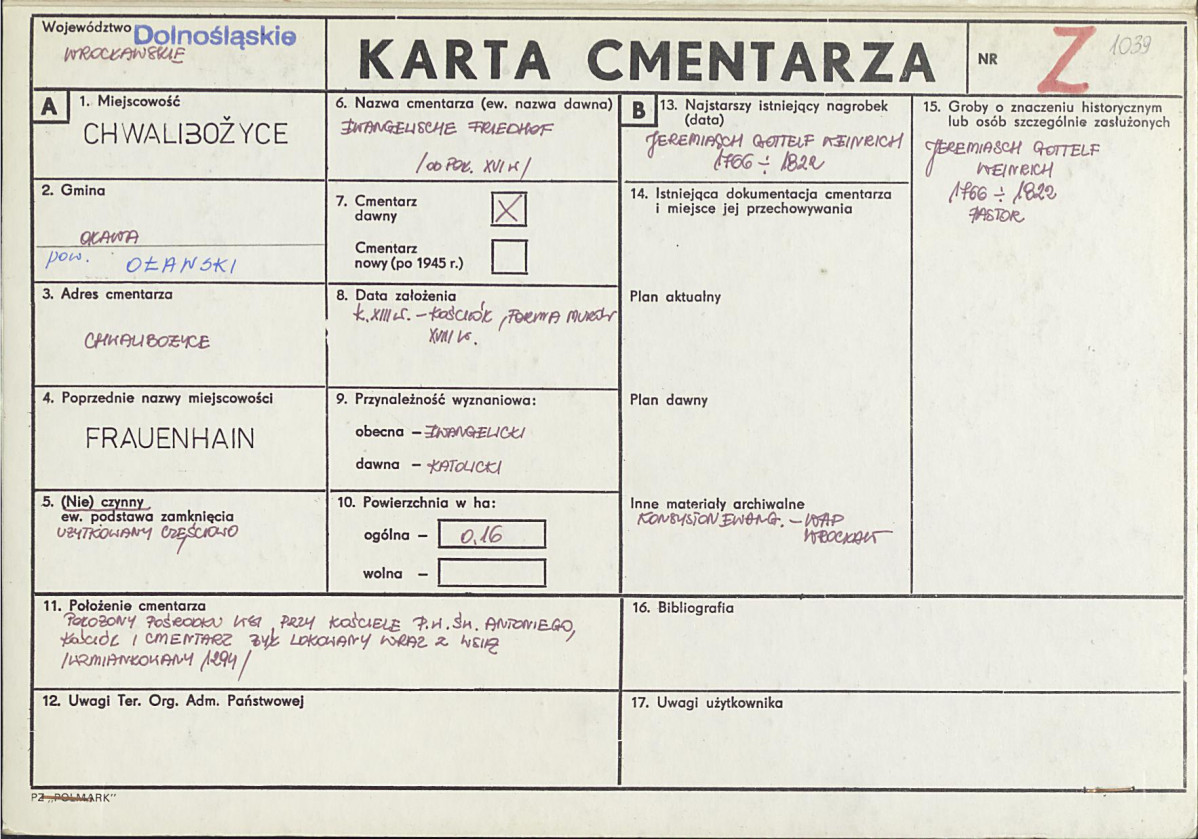 Województwo Dolnośląskie
WROCŁAWSKIE
KARTA CMENTARZA
NR Z 1039
A 1. Miejscowość
CHWALIBOŻYCE
2. Gmina
OŁAWA
pow. OŁAWSKI
3. Adres cmentarza
CHWALIBOŻYCE
4. Poprzednie nazwy miejscowości
FRAUENHAIN
5. (Nie) czynny
ew. podstawa zamknięcia
UŻYTKOWANY CZĘŚCIOWO
6. Nazwa cmentarza (ew. nazwa dawna)
EWANGELISCHE FRIEDHOF
/OD POŁ. XVI W/
7. Cmentarz
dawny X
Cmentarz
nowy (po 1945 r.)
8. Data założenia
K. XIII W. – KOŚCIÓŁ, FORMA MURÓW
XVIII W.
9. Przynależność wyznaniowa:
obecna – EWANGELICKI
dawna – KATOLICKI
10. Powierzchnia w ha:
ogólna – 0,16
wolna –
11. Położenie cmentarza
POŁOŻONY POŚRODKU WSI, PRZY KOŚCIELE P.W. ŚW. ANTONIEGO,
KOŚCIÓŁ I CMENTARZ BYŁ LOKOWANY WRAZ Z WSIĄ
/WZMIANKOWANY 1294/
12. Uwagi Ter. Org. Adm. Państwowej
B 13. Najstarszy istniejący nagrobek
(data)
JEREMIASCH GOTTELF WEINRICH
1766 ÷ 1822
14. Istniejąca dokumentacja cmentarza
i miejsce jej przechowywania
Plan aktualny
Plan dawny
Inne materiały archiwalne
EWANG. – WAP
WROCŁAW
15. Groby o znaczeniu historycznym
lub osób szczególnie zasłużonych
JEREMIASCH GOTTELF
WEINRICH
1766 ÷ 1822
PASTOR
16. Bibliografia
17. Uwagi użytkownika
PZ „POLMARK"